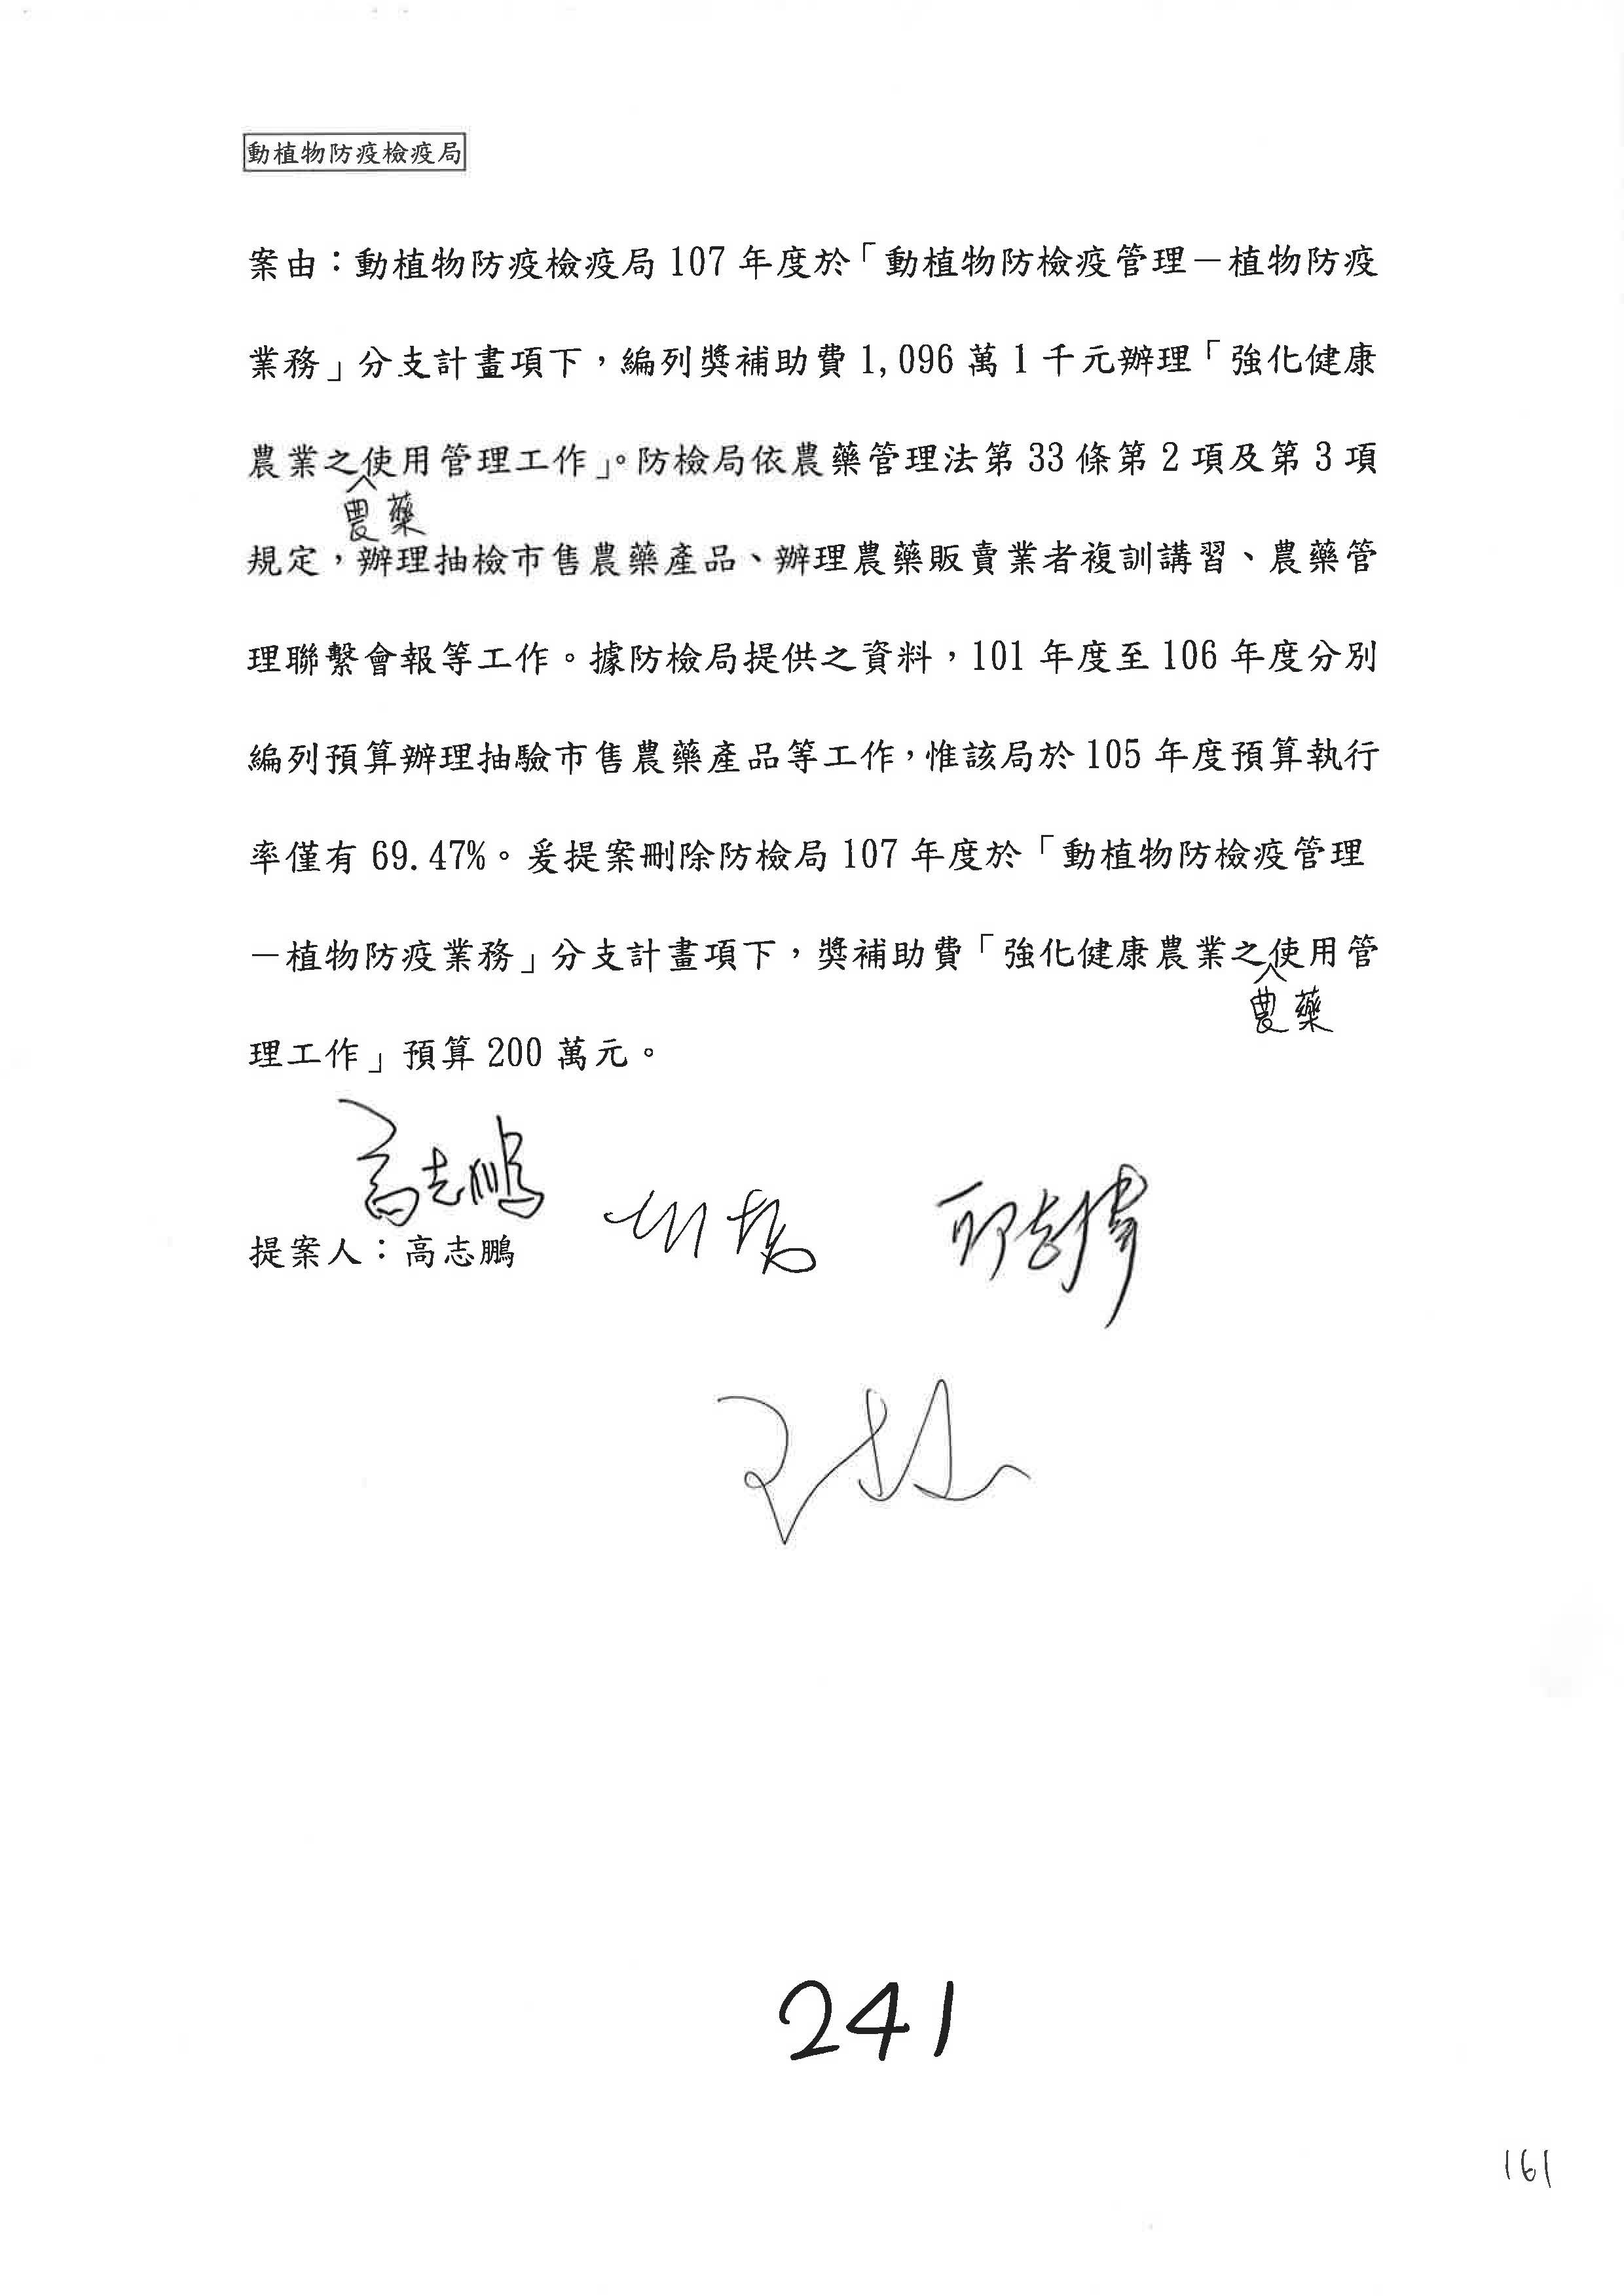 動植物防疫檢疫局
案由：動植物防疫檢疫局 107 年度於「動植物防檢疫管理－植物防疫
業務」分支計畫項下，編列獎補助費 1,096 萬 1 千元辦理「強化健康
農業之使用管理工作」。防檢局依農藥管理法第 33 條第 2 項及第 3 項
農藥
規定，辦理抽檢市售農藥產品、辦理農藥販賣業者複訓講習、農藥管
理聯繫會報等工作。據防檢局提供之資料，101 年度至 106 年度分別
編列預算辦理抽驗市售農藥產品等工作，惟該局於 105 年度預算執行
率僅有 69.47%。爰提案刪除防檢局 107 年度於「動植物防檢疫管理
－植物防疫業務」分支計畫項下，獎補助費「強化健康農業之使用管
農藥
理工作」預算 200 萬元。
高志鵬
提案人：高志鵬
241
161